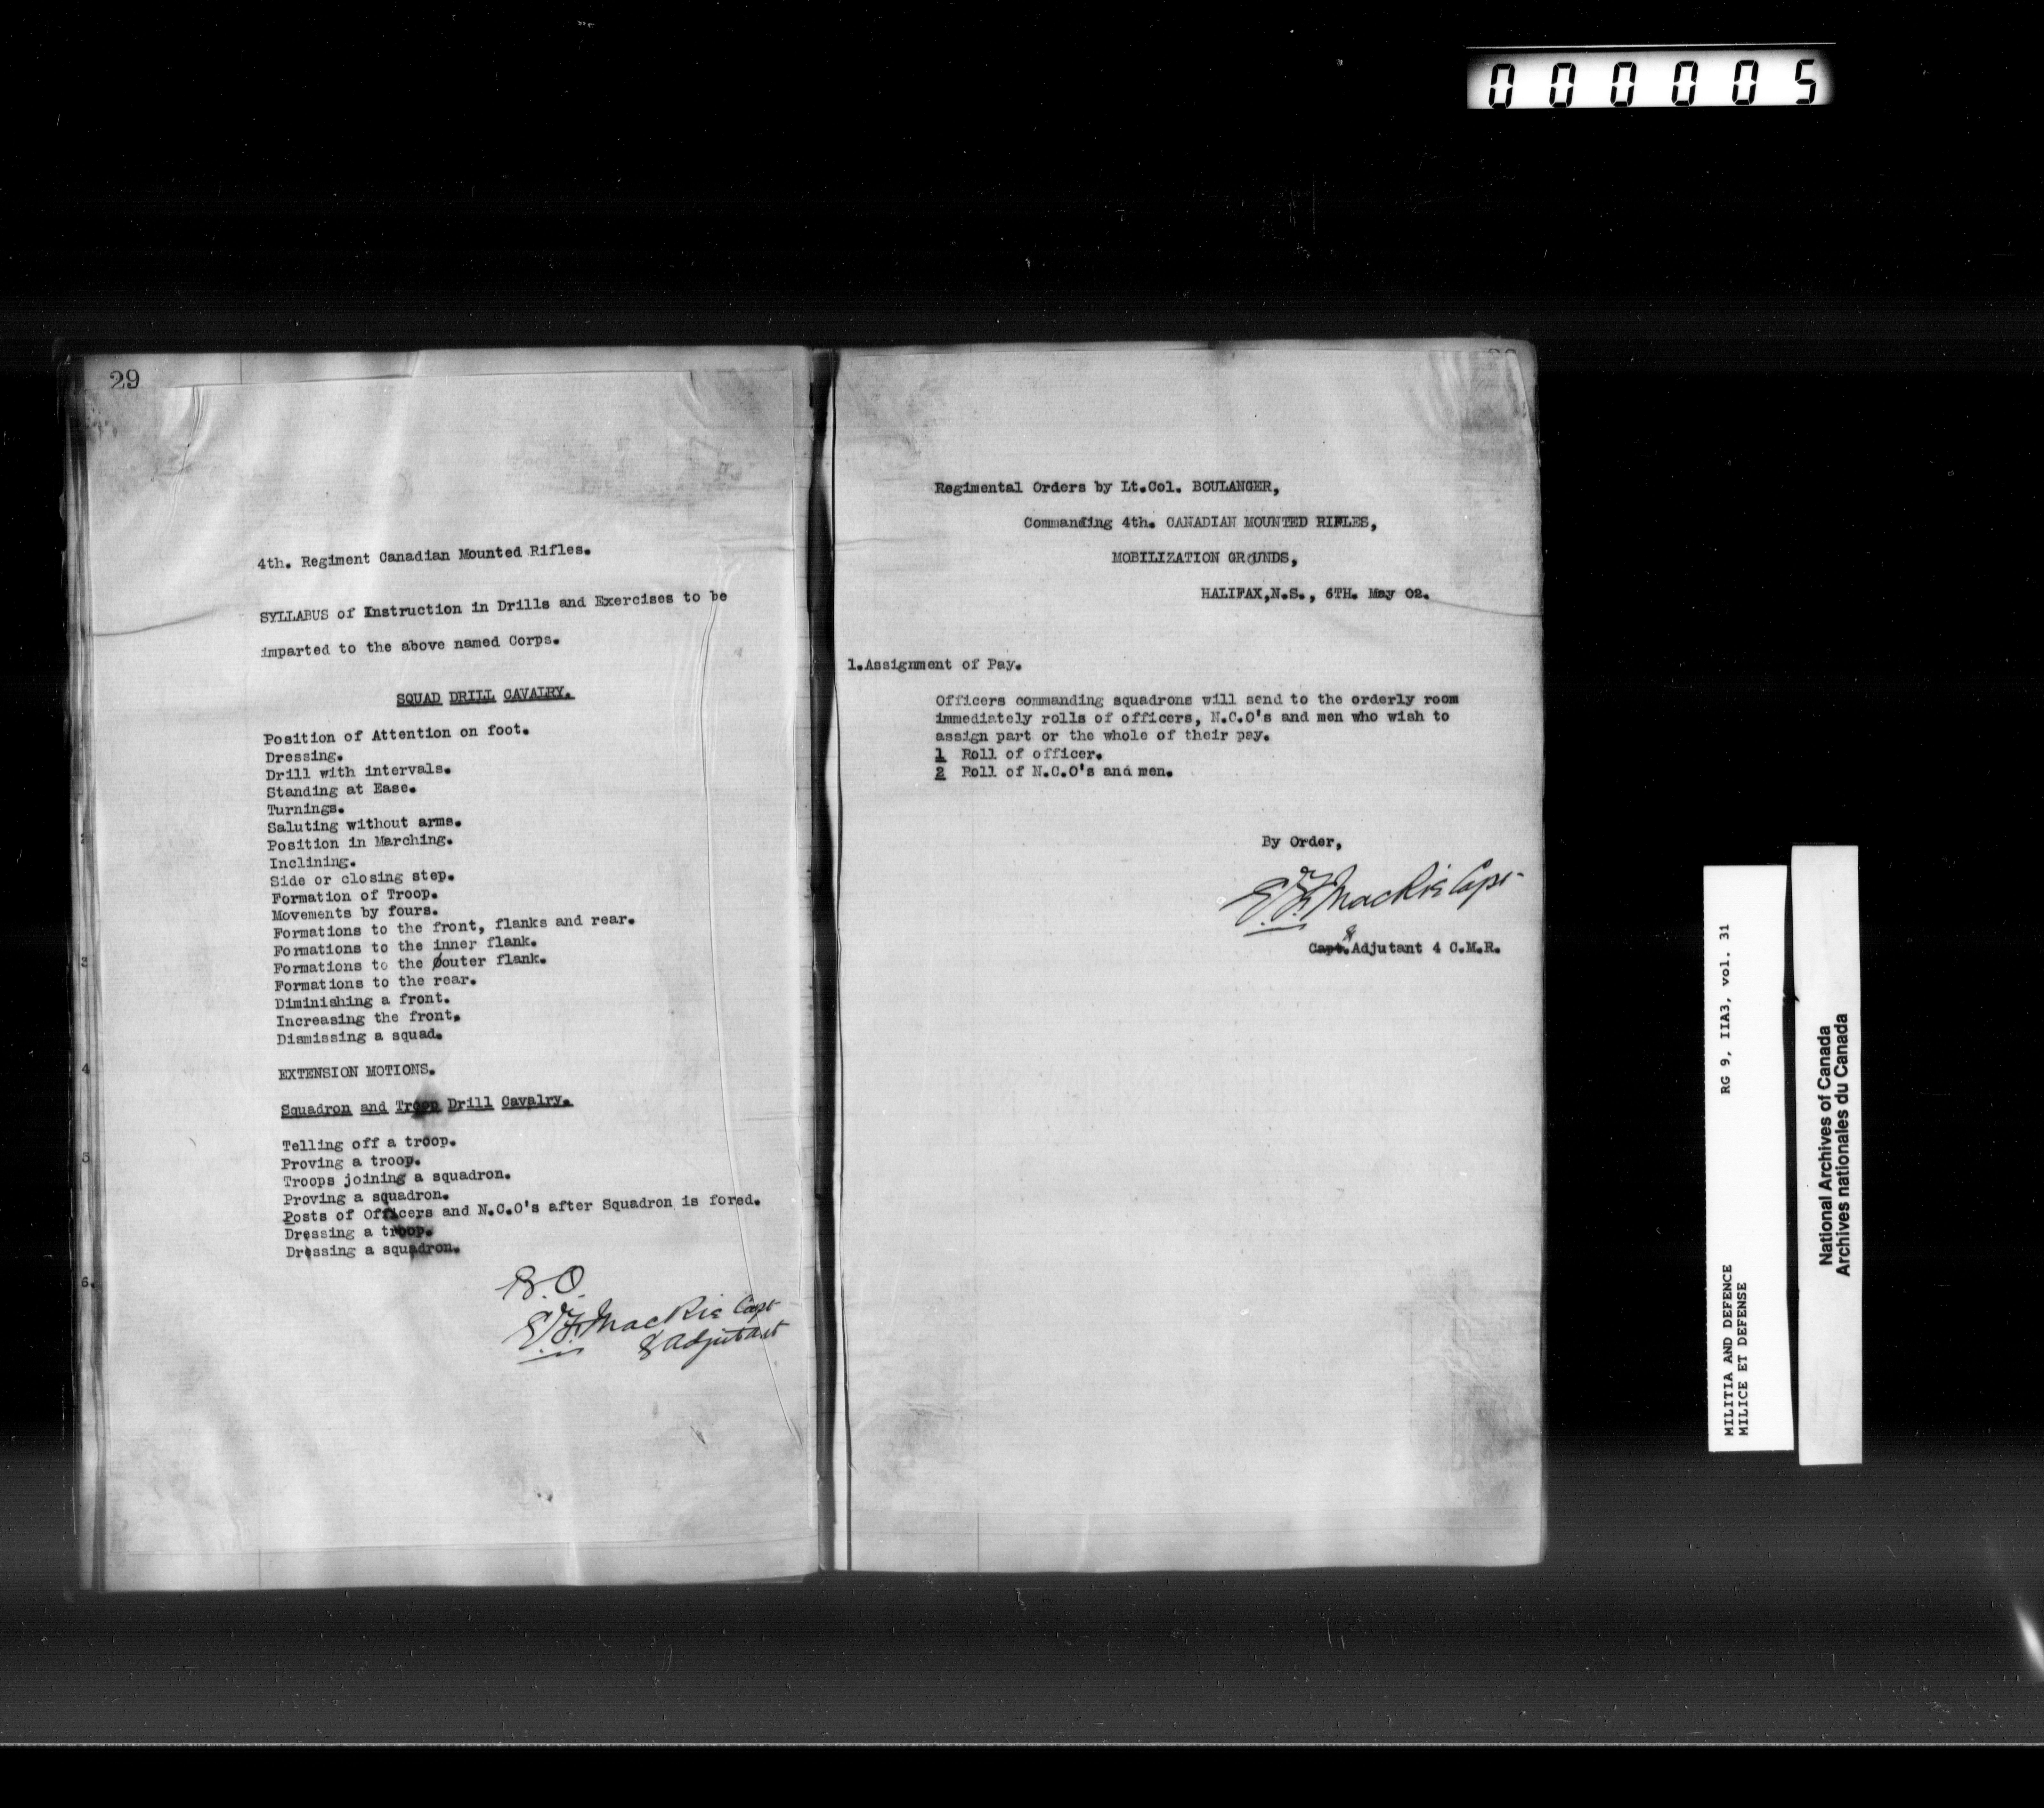 000005
29
4th. Regiment Canadian Mounted Rifles.
SYLLABUS of Instruction in Drills and Exercises to be
imparted to the above named Corps.
SQUAD DRILL CAVALRY.
Position of Attention on foot.
Dressing.
Drill with intervals.
Standing at Ease.
Turnings.
Saluting without arms.
Position in Marching.
Inclining.
Side or closing step.
Formation of Troop.
Movements by fours.
Formations to the front, flanks and rear.
Formations to the inner flank.
Formations to the outer flank.
Formations to the rear.
Diminishing a front.
Increasing the front.
Dismissing a squad.
EXTENSION MOTIONS.
Squadron and Troop Drill Cavalry.
Telling off a troop.
Proving a troop.
Troops joining a squadron.
Proving a squadron.
Posts of Officers and N.C.O's after Squadron is fored.
Dressing a troop.
Dressing a squadron.
B.O.
MacKie Capt
& Adjutant
3
4
5
6.
Regimental Orders by Lt.Col. BOULANGER,
Commanding 4th. CANADIAN MOUNTED RIFLES,
MOBILIZATION GROUNDS,
HALIFAX,N.S., 6TH. May 02.
1.Assignment of Pay.
Officers commanding squadrons will send to the orderly room
immediately rolls of officers, N.C.O's and men who wish to
assign part or the whole of their pay.
1 Roll of officer.
2 Roll of N.C.O's and men.
By Order,
MacKie Capt
Capt. & Adjutant 4 C.M.R.
MILITIA AND DEFENCE RG 9, IIA3, vol. 31
MILICE ET DEFENSE
National Archives of Canada
Archives nationales du Canada